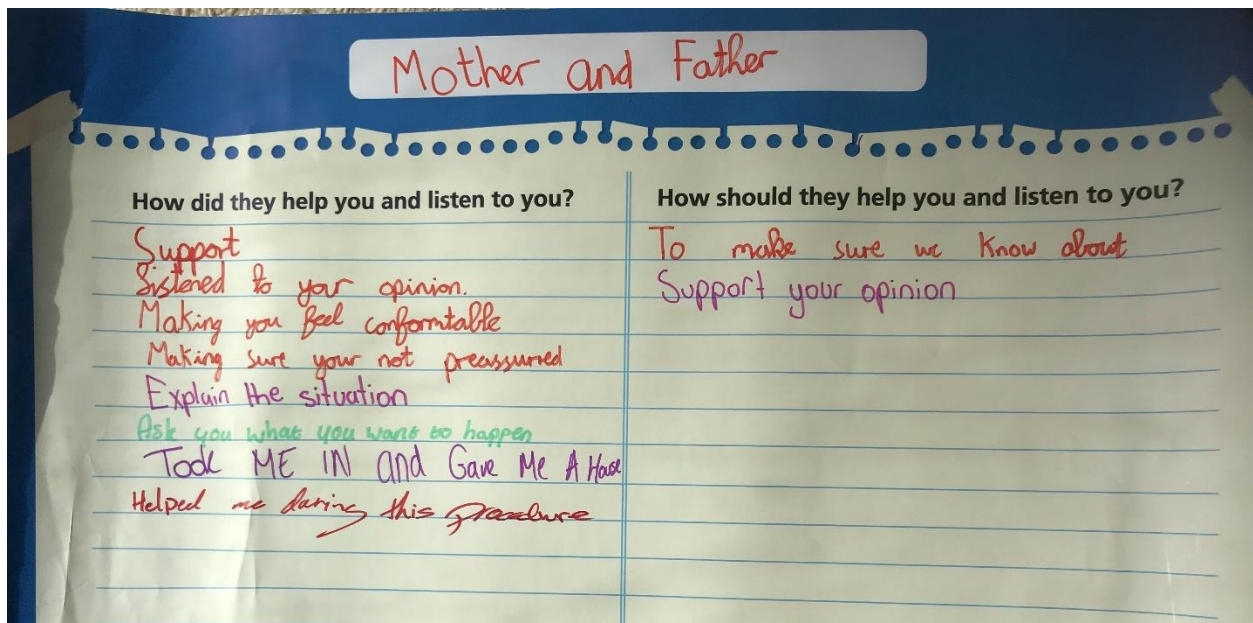 Mother and Father
How did they help you and listen to you?
Support
Sistened to your opinion.
Making you feel conformtable
Making sure your not preassurred
Explain the situation
Ask you what you want to happen
Took ME IN and Gave Me A House
Helped me during this procedure
How should they help you and listen to you?
To make sure we know about
Support your opinion